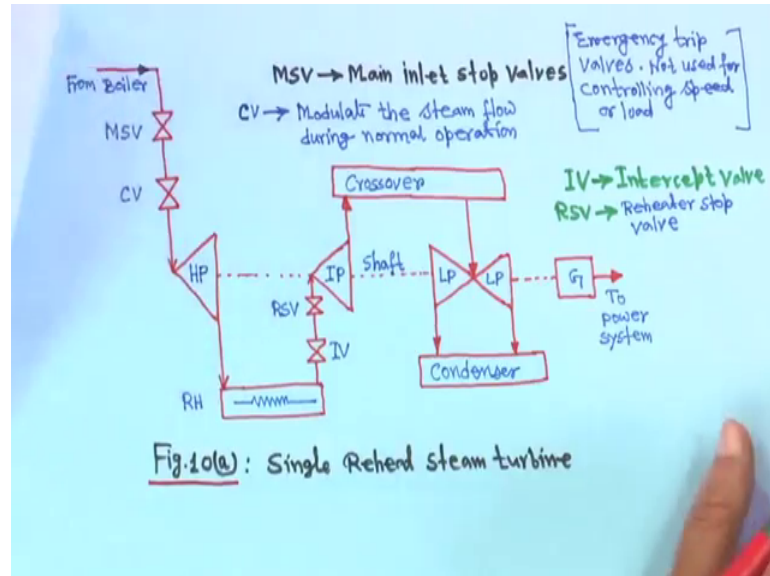 From Boiler
MSV → Main inlet stop valves
[Emergency trip
valves. Not used for
controlling speed
or load]
CV → Modulate the steam flow
during normal operation
MSV
CV
Crossover
IV → Intercept valve
RSV → Reheater stop
valve
HP
IP
Shaft
LP
LP
G
To
power
system
RSV
IV
Condenser
RH
Fig.10(a): Single Rehead steam turbine